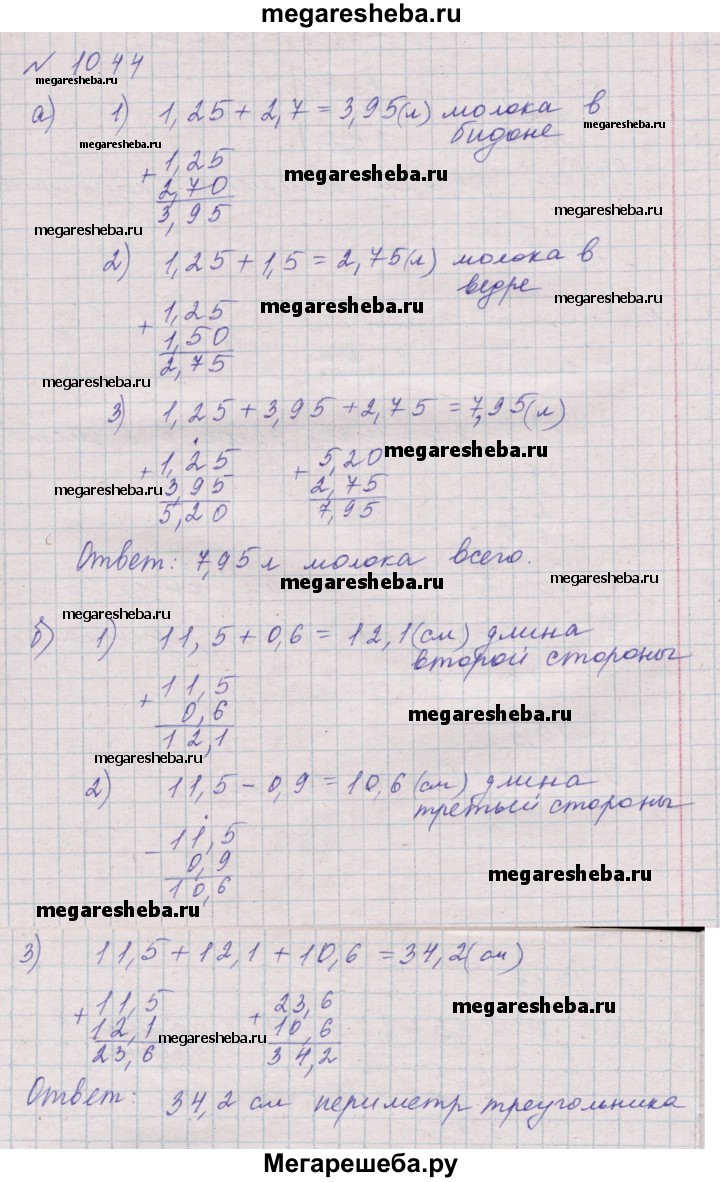 megaresheba.ru
№ 1044
megaresheba.ru
а) 1) 1,25 + 2,7 = 3,95 (л) молока в
бидоне
megaresheba.ru
megaresheba.ru
megaresheba.ru
+ 1,25
2,70
3,95
megaresheba.ru
megaresheba.ru
megaresheba.ru
2) 1,25 + 1,5 = 2,75 (л) молока в
ведре
megaresheba.ru
megaresheba.ru
+ 1,25
1,50
2,75
megaresheba.ru
3) 1,25 + 3,95 + 2,75 = 7,95 (л)
megaresheba.ru
+ 1,25 + 5,20
3,95 2,75
5,20 7,95
megaresheba.ru
Ответ: 7,95 л молока всего.
megaresheba.ru
megaresheba.ru
megaresheba.ru
б) 1) 11,5 + 0,6 = 12,1 (см) длина
второй стороны
+ 11,5
0,6
12,1
megaresheba.ru
megaresheba.ru
2) 11,5 - 0,9 = 10,6 (см) длина
третьый стороны
- 11,5
0,9
10,6
megaresheba.ru
megaresheba.ru
3) 11,5 + 12,1 + 10,6 = 34,2 (см)
+ 11,5 + 23,6
12,1 10,6
23,6 34,2
megaresheba.ru
megaresheba.ru
Ответ: 34,2 см периметр треугольника
Мегарешеба.ру